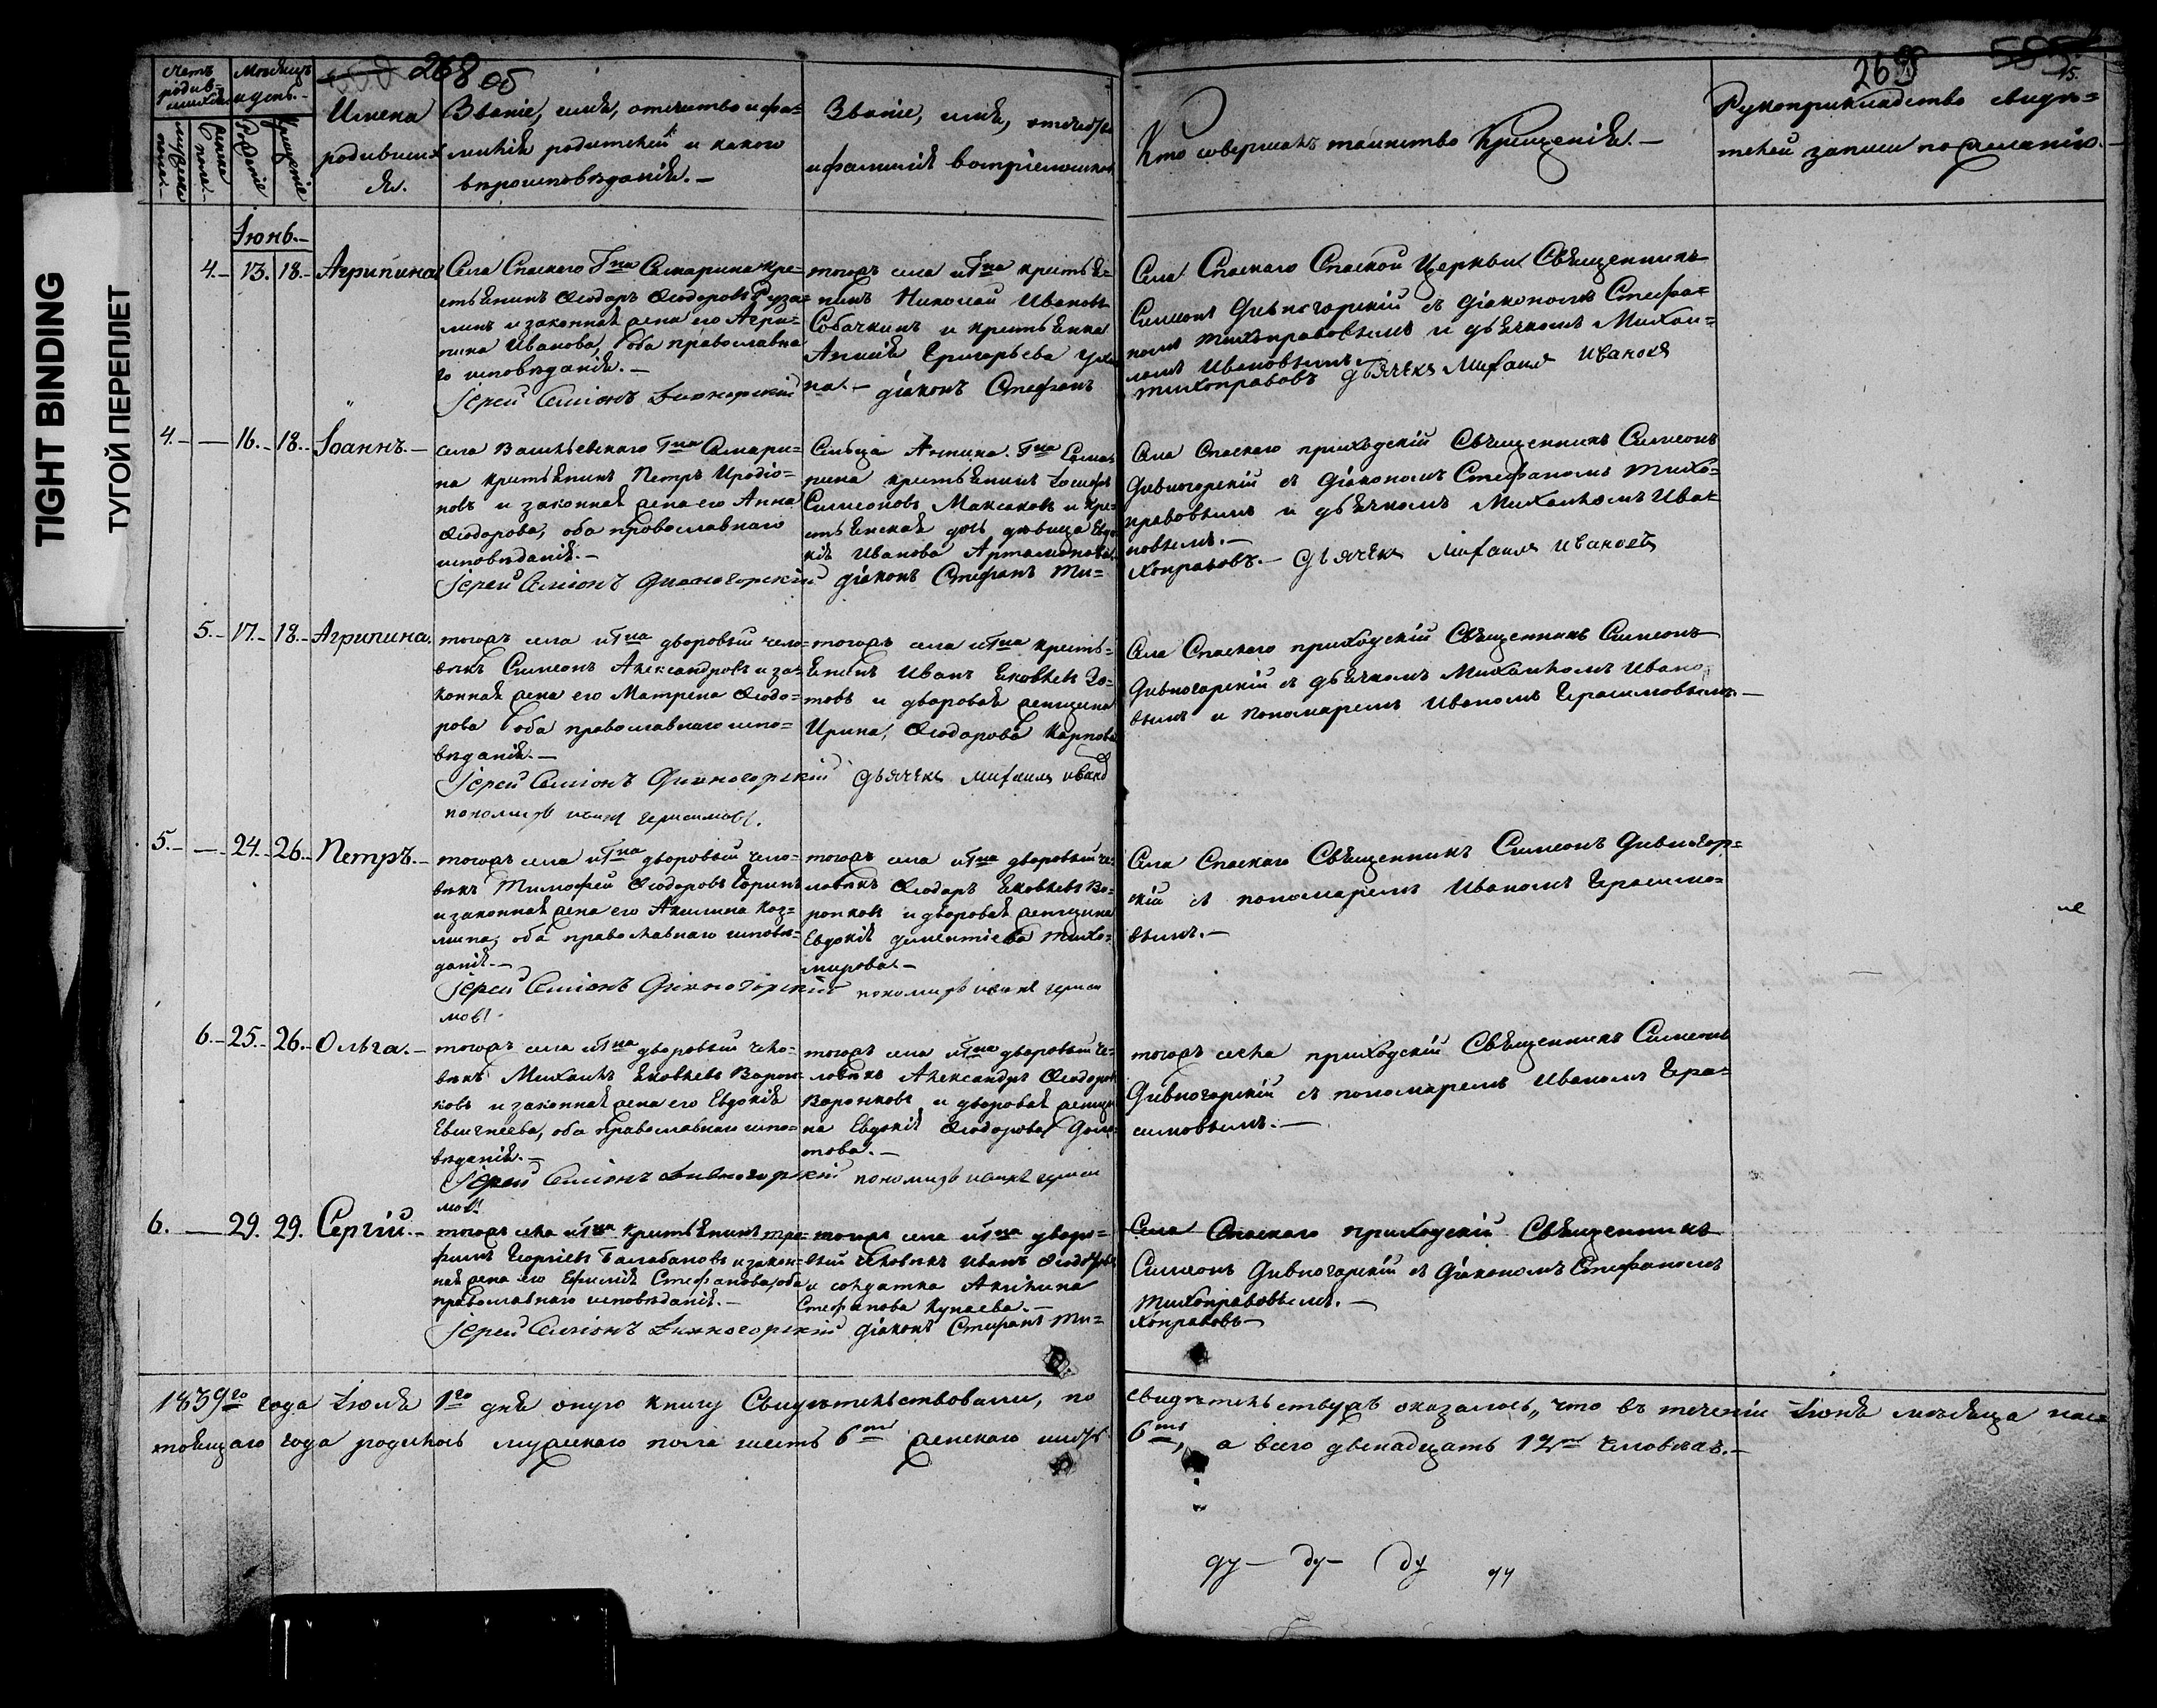 TIGHT BINDING
ТУГОЙ ПЕРЕПЛЕТ
268 об
269
15.
Счетъ родив-
шихся
Мѣсяцъ
и день.
мужеска пола.
женска пола.
Рожденіе
Крещеніе
Имена
родивших
ся.
Званіе, имя, отечество и фа=
милія родителей и какого
вѣроисповѣданія.—
Званіе, имя, отечество
и фамилія воспріемниковъ
Кто совершалъ таинство Крещенія.—
Рукоприкладство свидѣ=
телей записи по желанію.—
Іюнь.—
4.— 13. 18.— Агрипина
Села Спаскаго Гна Самарина кре=
стьянинъ Ѳеодоръ Ѳеодоровъ Руза=
линъ и законная жена его Агри=
пина Иванова, оба православна
го исповѣданія.—
Іерей Симіонъ Дивногорскій
тогожъ села и Гна крестья=
нинъ Николай Ивановъ
Собачкинъ и крестьянка
Анисія Григорьева
на.— діаконъ Стефанъ
Села Спаскаго Спаской Церкви Священникъ
Симеонъ Дивногорскій съ діакономъ Стефа=
номъ Тихонравовымъ и дьячкомъ Михаи=
ломъ Ивановымъ.—
Тихонравовъ дьячекъ Михаилъ Ивановъ
4.— — 16.— 18.— Іоаннъ.—
села Васильевскаго Гна Самари=
на крестьянинъ Петръ Иродіо=
новъ и законная жена его Анна
Ѳеодорова, оба православнаго
исповѣданія.—
Іерей Симіонъ Дивногорскій
Сельца Гна Сама
рина крестьянинъ Іосифъ
Симеоновъ Максаковъ и кре=
стьянская дочь дѣвица Евдо
кія Иванова Артамонова
діаконъ Стефанъ Ти=
Села Спаскаго приходскій Священникъ Симеонъ
Дивногорскій съ діакономъ Стефаномъ Тихо=
нравовымъ и дьячкомъ Михаиломъ Ива=
новымъ.—
хонравовъ.— дьячекъ Михаилъ Ивановъ
5.— 17.— 18.— Агрипина.
тогожъ села и Гна дворовый чело=
вѣкъ Симеонъ Александровъ и за=
конная жена его Матрена Ѳеодо=
рова оба православнаго испо=
вѣданія.—
Іерей Симіонъ Дивногорскій
пономарь Иванъ Герасимовъ.
тогожъ села и Гна кресть=
янинъ Иванъ Яковлевъ Зо=
товъ и дворовая женщина
Ирина Ѳеодорова Карпова
дьячекъ Михаилъ Иванов
Села Спаскаго приходскій Священникъ Симеонъ
Дивногорскій съ дьячкомъ Михаиломъ Ивано
вымъ и пономаремъ Иваномъ Герасимовымъ.—
5.— — 24.— 26.— Петръ.—
тогожъ села и Гна дворовый чело=
вѣкъ Тимофей Ѳеодоровъ Горинъ
и законная жена его Акилина Коз=
мина, оба православнаго исповѣ=
данія.—
Іерей Симіонъ Дивногорскій
мовъ.
тогожъ села и Гна дворовый че=
ловѣкъ Ѳеодоръ Яковлевъ Во=
ронковъ и дворовая женщина
Евдокія Дементіева Тихо=
мирова.—
пономарь Иванъ Гераси
Села Спаскаго Священникъ Симеонъ Дивногор=
скій съ пономаремъ Иваномъ Герасимо=
вымъ.—
6.— 25.— 26.— Ольга.—
тогожъ села и Гна дворовый чело=
вѣкъ Михаилъ Яковлевъ Ворон=
ковъ и законная жена его Евдокія
Евгенеева, оба православнаго испо=
вѣданія.—
Іерей Симіонъ Дивногорскій
мовъ
тогожъ села и Гна дворовый че=
ловѣкъ Александръ Ѳеодоров
Воронковъ и дворовая женщи
на Евдокія Ѳеодорова
това.—
пономарь Иванъ Гераси
тогожъ села приходскій Священникъ Симеонъ
Дивногорскій съ пономаремъ Иваномъ Гера=
симовымъ.—
6. — 29. 29. Сергій.—
тогожъ села и Гна крестьянинъ Тро=
фимъ Георгіевъ Балабановъ и закон=
ная жена его Ефимія Стефанова, оба
православнаго исповѣданія.—
Іерей Симіонъ Дивногорскій
тогожъ села и Гна дворо=
вый человѣкъ Иванъ Ѳеодоровъ
и солдатка Акилина
Стефанова Кунаева.—
діаконъ Стефанъ Ти=
Села Спаскаго приходскій Священникъ
Симеонъ Дивногорскій съ діакономъ Стефаномъ
Тихонравовымъ.—
хонравовъ—
1839го года Іюля 1го дня оную книгу Свидѣтельствовали, по
свидѣтельствужъ оказалось, что въ теченіи Іюня мѣсяца нас=
тоящаго года родилось мужскаго пола шесть 6ть женскаго шесть
6ть, а всего двенадцать 12ть человѣкъ.—